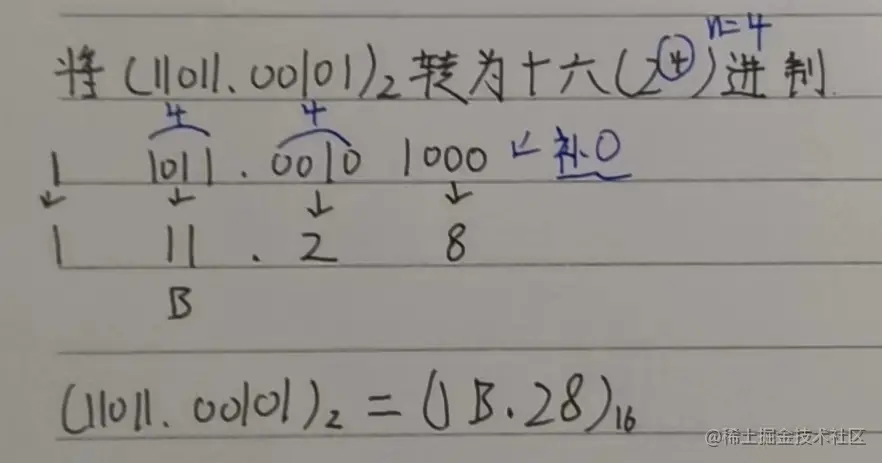 将(11011.00101)₂转为十六(2④)进制 n=4
4 4
1 1011 . 0010 1000 ↙补0
↓ ↓ ↓ ↓
1 11 . 2 8
B
(11011.00101)₂=(1B.28)₁₆
@稀土掘金技术社区